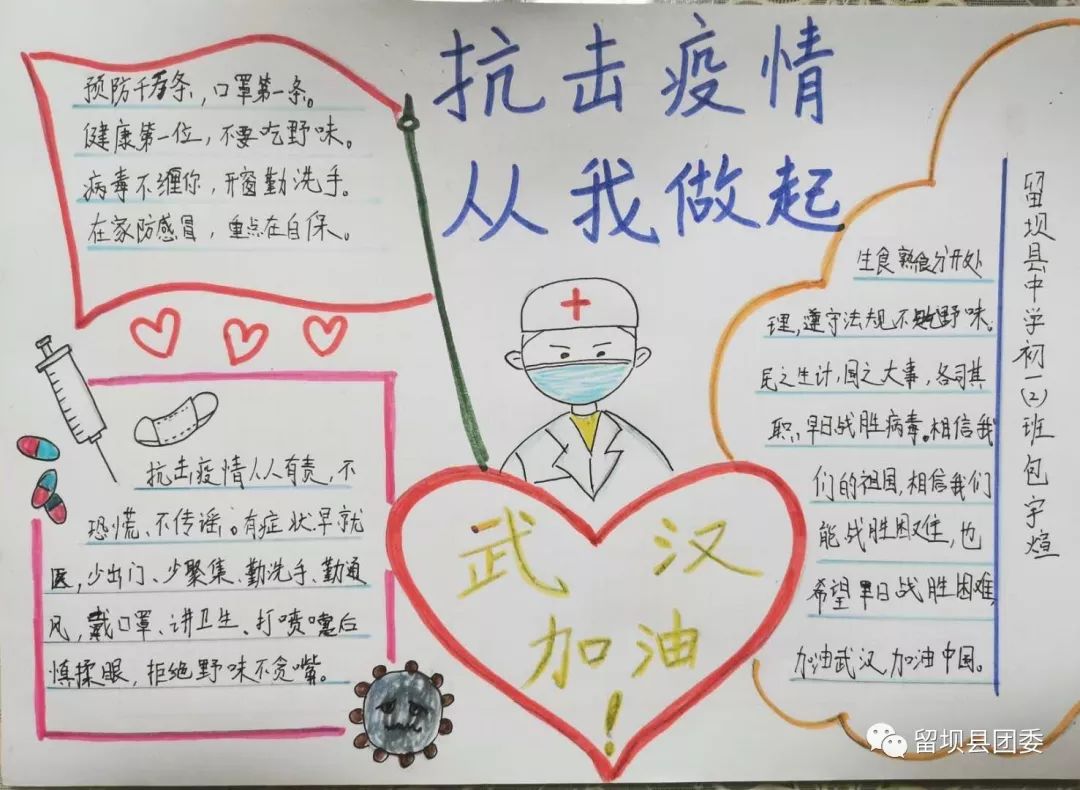 抗击疫情
从我做起
预防千万条，口罩第一条。
健康第一位，不要吃野味。
病毒不缠你，开窗勤洗手。
在家防感冒，重点在自保。
抗击疫情人人有责，不
恐慌、不传谣。有症状早就
医，少出门、少聚集、勤洗手、勤通
风，戴口罩、讲卫生、打喷嚏后
慎揉眼，拒绝野味不贪嘴。
武汉
加油！
生食熟食分开处
理，遵守法规不吃野味。
民之生计，国之大事，各司其
职，早日战胜病毒。相信我
们的祖国，相信我们
能战胜困难，也
希望早日战胜困难
加油武汉，加油中国。
留坝县中学初一(2)班包宇煊
留坝县团委